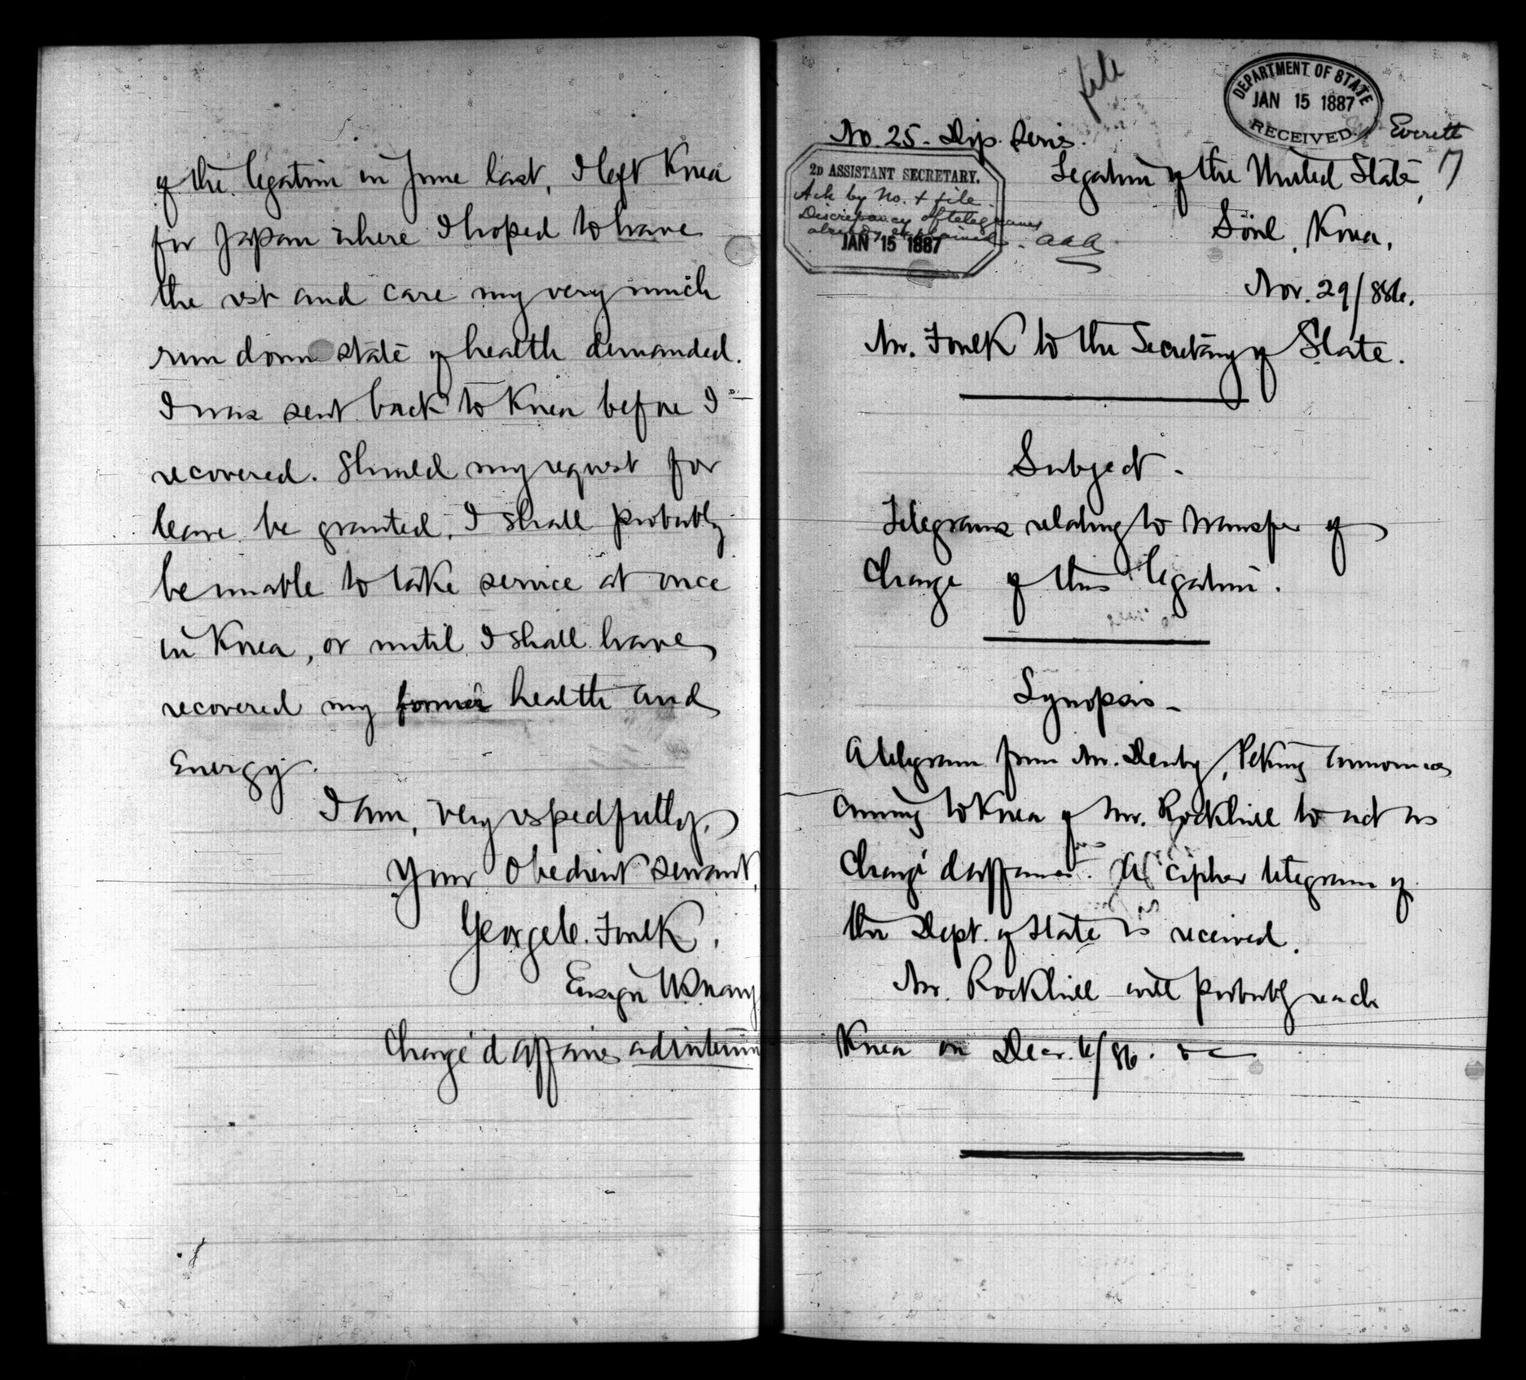 of the legation in June last, I left Korea
for Japan where I hoped to have
the rest and care my very much
run down state of health demanded.
I was sent back to Korea before I
recovered. Should my request for
leave be granted, I shall probably
be unable to take service at once
in Korea, or until I shall have
recovered my former health and
Energy.
I am, very respectfully,
Your Obedient servant,
George C. Foulk,
Ensign U.S. navy
Chargé d'affaires ad interim
file
DEPARTMENT OF STATE
JAN 15 1887
RECEIVED
Everett
No. 25 - Dip. Series.
2D ASSISTANT SECRETARY.
Ack by No. & file.
Discrepancy of telegrams
already explained. A.A.A.
JAN 15 1887
Legation of the United States, 17
Söul, Korea,
Nov. 29/886.
Mr. Foulk to the Secretary of State.
Subject -
Telegrams relating to transfer of
Charge of this legation.
Synopsis -
A telegram from Mr. Denby, Peking announces
coming to Korea of Mr. Rockhill to act as
Chargé d'affaires. A cipher telegram of
the Dept. of State is received.
Mr. Rockhill will probably reach
Korea on Dec. 6/86.